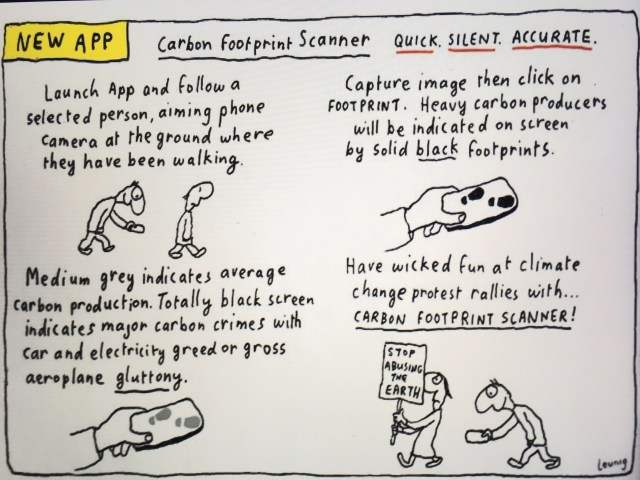 NEW APP
Carbon Footprint Scanner
QUICK. SILENT. ACCURATE.
Launch App and follow a
selected person, aiming phone
camera at the ground where
they have been walking.
Capture image then click on
FOOTPRINT. Heavy carbon producers
will be indicated on screen
by solid black footprints.
Medium grey indicates average
carbon production. Totally black screen
indicates major carbon crimes with
car and electricity greed or gross
aeroplane gluttony.
Have wicked fun at climate
change protest rallies with...
CARBON FOOTPRINT SCANNER!
STOP
ABUSING
THE
EARTH
Leunig